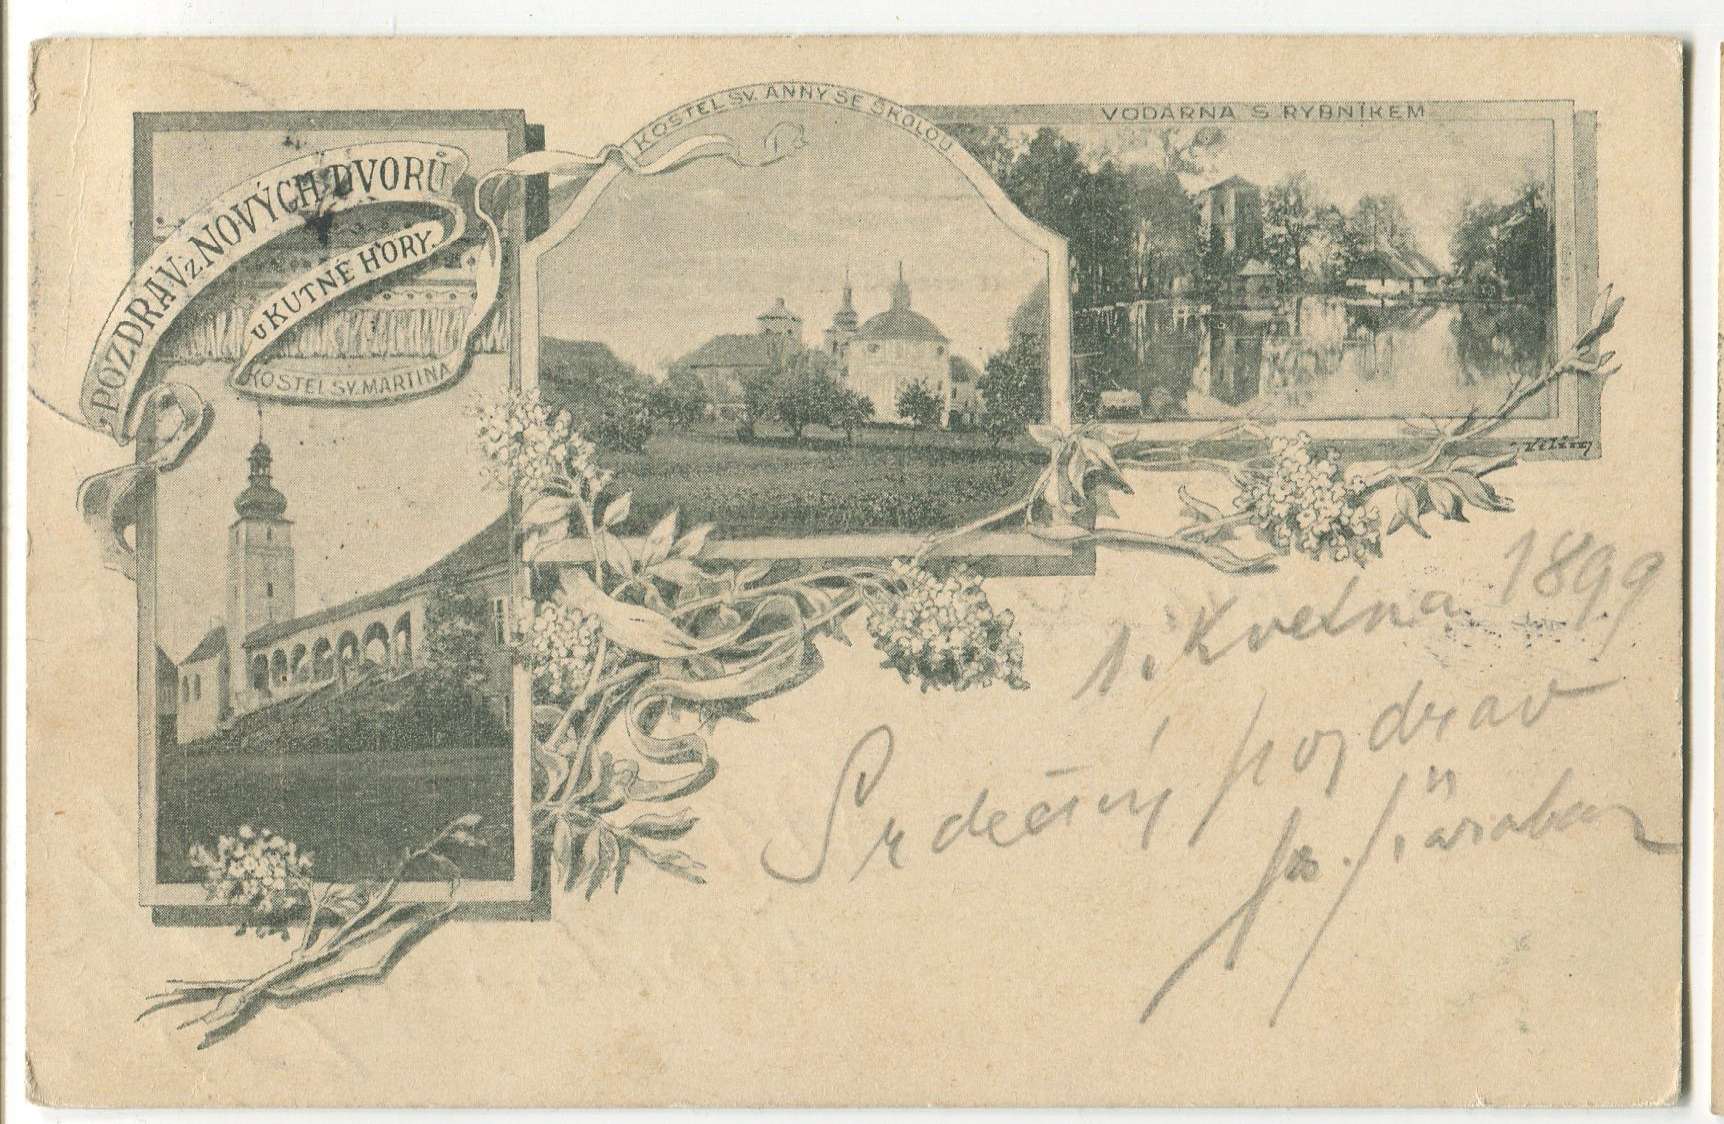 POZDRAV Z NOVÝCH DVORŮ
U KUTNÉ HORY.
KOSTEL SV. MARTINA
KOSTEL SV. ANNY SE ŠKOLOU
VODÁRNA S RYBNÍKEM
1. Května 1899
Srdečný pozdrav